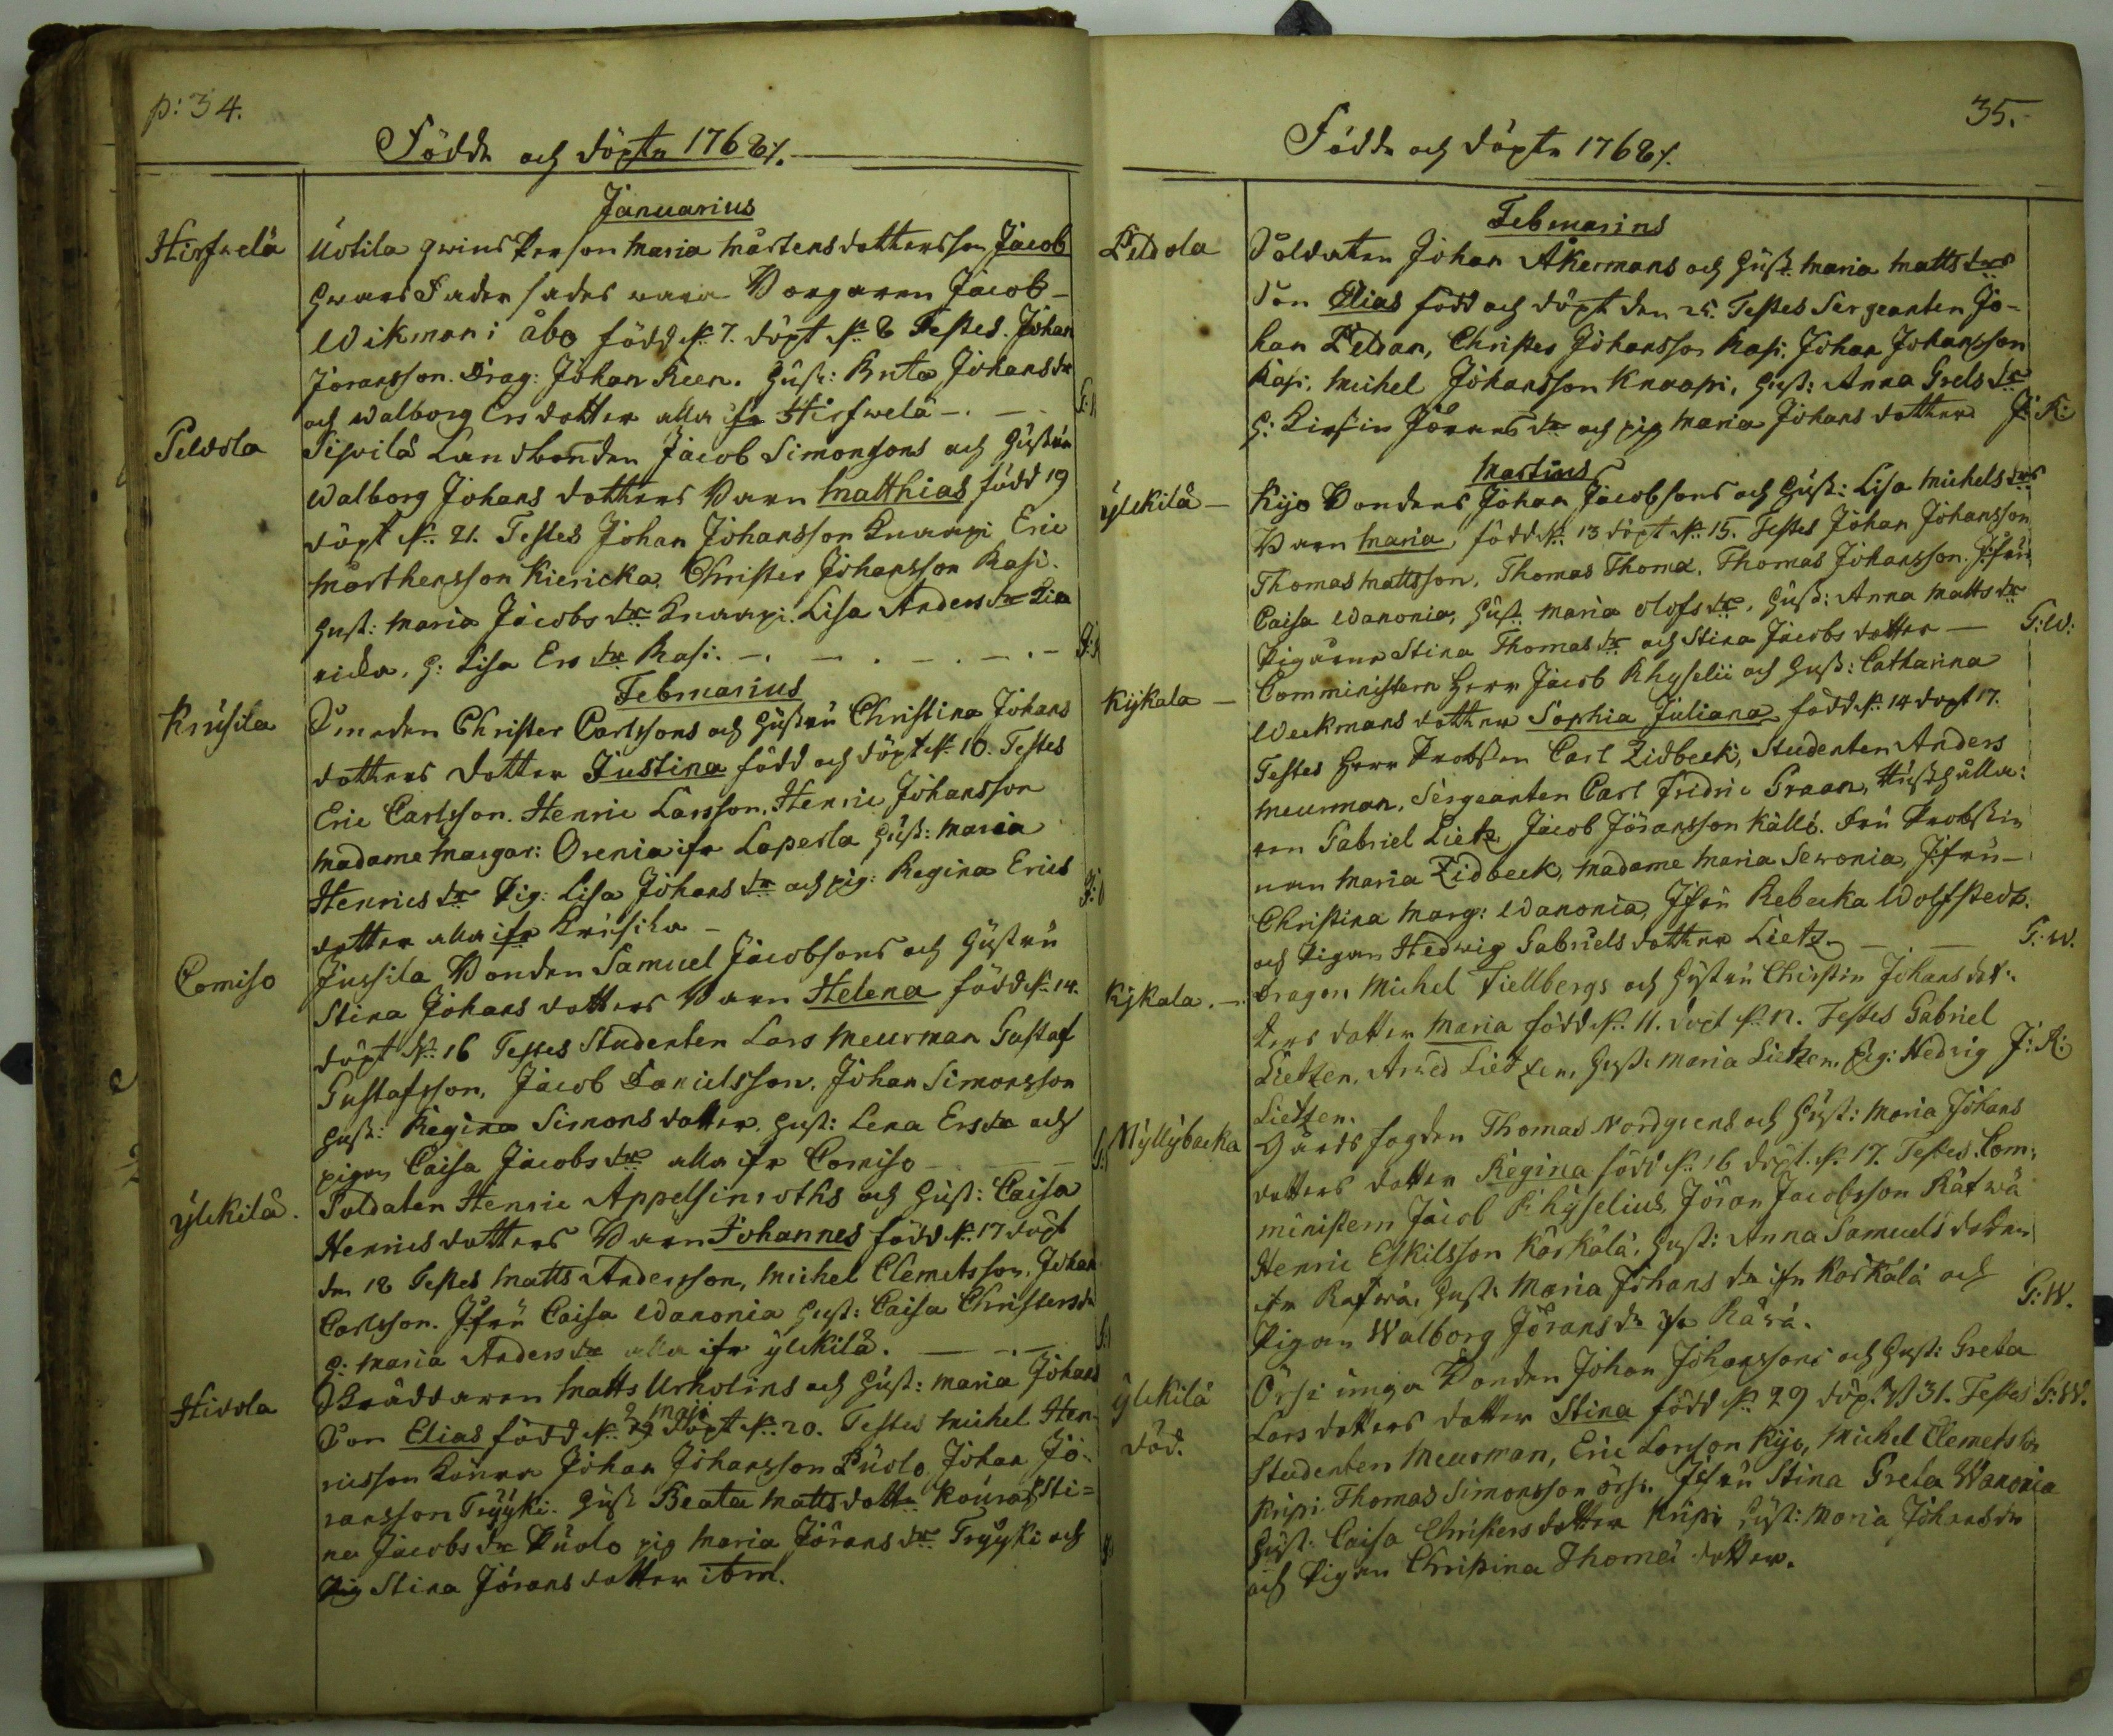 p: 34.
Födde och döpte 1768/.
Januarius
Hirfwelä
Uotila qwins Person Maria Mårtens dottersson Jacob
hwars Fader sades wara Borgaren Jacob
Wikman i åbo född d. 7. döpt d. 8 Testes. Johan
Joransson. Drag: Johan Reen. Hust: Brita Johansdr
och Walborg Ersdotter alla ifr Hirfwelä
Peldola
Sipilä Landbonden Jacob Simonsons och Hustru
Walborg Johans dotters Barn Matthias född 19
döpt d. 21. Testes Johan Johansson Knaapi Eric
Mårthensson Kiericka. Christer Johansson Kasi.
Hust: Maria Jacobs dr Knaapi. Lisa Anders dr Kie
ricka, H: Lisa Ers dr Kasi.
Februarius
Krusila
Smeden Christer Carlssons och Hustru Christina Johans
dotters dotter Justina född och döpt d. 10. Testes
Eric Carlsson. Henric Larsson, Henric Johansson
Madame Margar: Orenia ifr Laperla Hust: Maria
Henrics dr Pig: Lisa Johans dr och pig: Regina Erics
dotter alla ifr Krusila
Comiso
Jussila Bonden Samuel Jacobsons och Hustru
Stina Johans dotters Barn Helena född d. 14.
döpt d. 16 Testes Studenten Lars Meurman Gustaf
Gustafsson, Jacob Danielsson. Johan Simonsson
Hust: Regina Simons dotter. Hust: Lena Ersdr och
pigan Caisa Jacobs dr alla ifr Comiso
ylikilä.
Soldaten Henric Appelsinroths och Hust: Caisa
Henrics dotters Barn Johannes född d. 17 döpt
den 18 Testes Matts Andersson, Michel Clemetsson, Johan
Carlsson. Jfru Caisa Wanonia Hust: Caisa Christersdr
H: Maria Anders dr alla ifr ylikilä.
Hidola
Skräddaren Matts Urholins och Hust: Maria Johans
2 Maji
Son Elias född d. 29 döpt d. 20. Testes Michel Hen
ricsson Johan Johansson Puolo Johan Jö-
ransson Tryyki. Hust Beata Matts dotter Sti=
na Jacobs dr Puolo pig Maria Jörans dr Tryyki och
Pig Stina Jörans dotter ibm.
35.
Födde och döpte 1768/.
Februarius
Peldola
Soldaten Johan Åkermans och Hust. Maria Matts drs
Son Elias född och döpt den 25. Testes Sergeanten Jo-
han Peldan, Christer Johansson Kasi. Johan Johansson
Kasi. Michel Johansson Knaapi, Hust: Anna Grels dr
H: Kirstin Jörans dr och pig Maria Johans dotter J: R:
Martius
ylikilä
Kijo Bondens Johan Jacobsons och Hust: Lisa Michels drs
Barn Maria, född d. 13 döpt d. 15. Testes Johan Johansson
Thomas Mattsson, Thomas Thomæ, Thomas Johansson. Jfru
Caisa Wanonia, Hust. Maria Olofs dr, Hust: Anna Matts dr
Pigorne Stina Thomas dr och Stina Jacobs dotter G:W:
Kijkala
Comministern Herr Jacob Rhyselii och Hust: Catharina
Weckmans dotter Sophia Juliana född d. 14 döpt 17.
Testes Herr Probsten Carl Zidbeck, Studenten Anders
Meurman, Sergeanten Carl Fridric Graan, Hushålla:
ren Gabriel Lietz, Jacob Jöransson Källi. Fru Probstin
nan Maria Zidbeck, Madame Maria Sewonia, Jfru-
Christina Marg: Wanonia, Jfru Rebecka Wolfstedt.
och Pigan Hedwig Gabriels dotter Lietz. G:W.
Kijkala.
Dragon Michel Fiellbergs och Hustru Christin Johans dot:
ters dotter Maria född d. 11. döpt d. 17. Testes Gabriel
Lietzen, Arwed Lietzen, Hust: Maria Lietzen, Pig: Hedvig J: R:
Lietzen.
Myllybacka
Gårds fogden Thomas Nordgrens och Hust: Maria Johans
dotters dotter Regina född d. 16 döpt. d. 17. Testes. Com:
ministern Jacob Rhyselius, Jöran Jacobsson Räfwä
Henric Eskilsson Kärkälä, Hust: Anna Samuels dotter
ifr Räfwä, Hust: Maria Johans dr ifr Kärkälä och
Pigan Walborg Jörans dr ifr Räfwä. G:W.
ylikilä
död.
Örsi unga Bonden Johan Johanssons och Hust: Greta
Lars dotters dotter Stina född d. 29 döp. d 31. Testes G:W.
Studenten Meurman, Eric Larsson Kijo, Michel Clemetsson
Krupi Thomas Simonsson örsi. Jfru Stina Greta Wanonia
Hust: Caisa Christers dotter Krupi Hust: Maria Johansdr
och Pigan Christina Thomæ dotter.